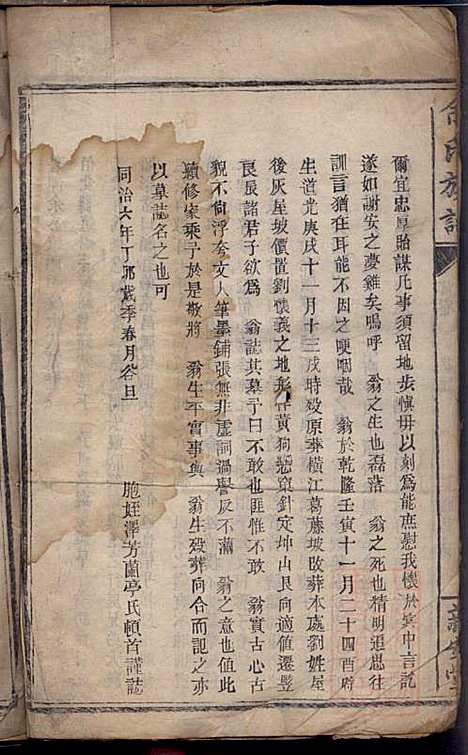 爾宜忠厚貽謀凡事須留地步慎毋以刻爲能庶慰我懷於冥中言訖
遂如謝安之夢雞矣嗚呼　翁之生也磊落　翁之死也精明追思往
訓言猶在耳能不因之哽咽哉　翁於乾隆壬寅十一月二十四酉時
生道光庚戌十一月十三戌時歿原葬橫江葛藤坡改葬本處劉姓屋
後灰屋坡價置劉懷義之地形似黃狗戀窠針定坤山艮向適值遷竪
良辰諸君子欲爲　翁誌其墓予曰不敢也匪惟不敢　翁實古心古
貌不尚浮夸文人筆墨鋪張無非虛詞過譽反不滿　翁之意也值此
續修家乘予於是敬將　翁生平實事與　翁生歿葬向合而誌之亦
以墓誌名之也可
同治六年丁卯歲季春月谷旦　胞姪澤芳蘭亭氏頓首謹誌
氏族譜